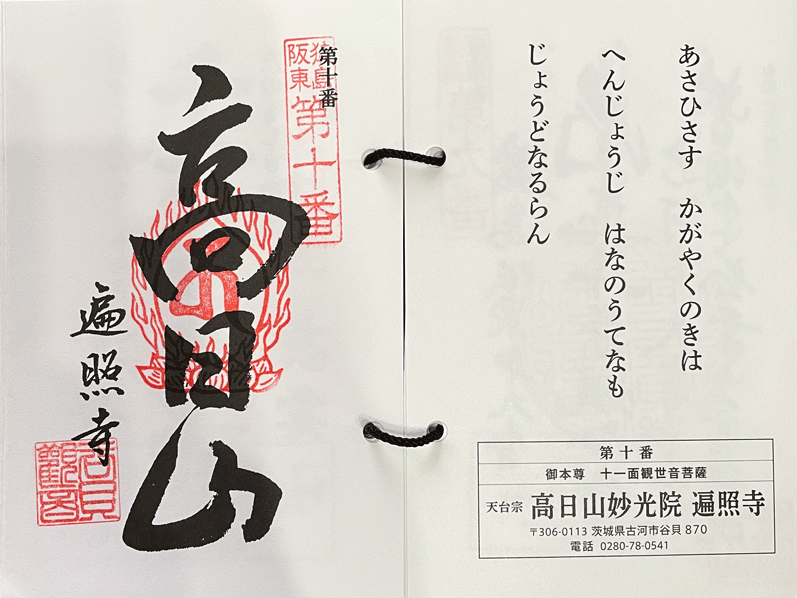 あさひさす　かがやくのきは
へんじょうじ　はなのうてなも
じょうどなるらん
第十番
御本尊　十一面観世音菩薩
天台宗 高日山妙光院 遍照寺
〒306-0113 茨城県古河市谷貝 870
電話 0280-78-0541
第十番
猿島
阪東
第十番
高日山
遍照寺
谷貝
觀音